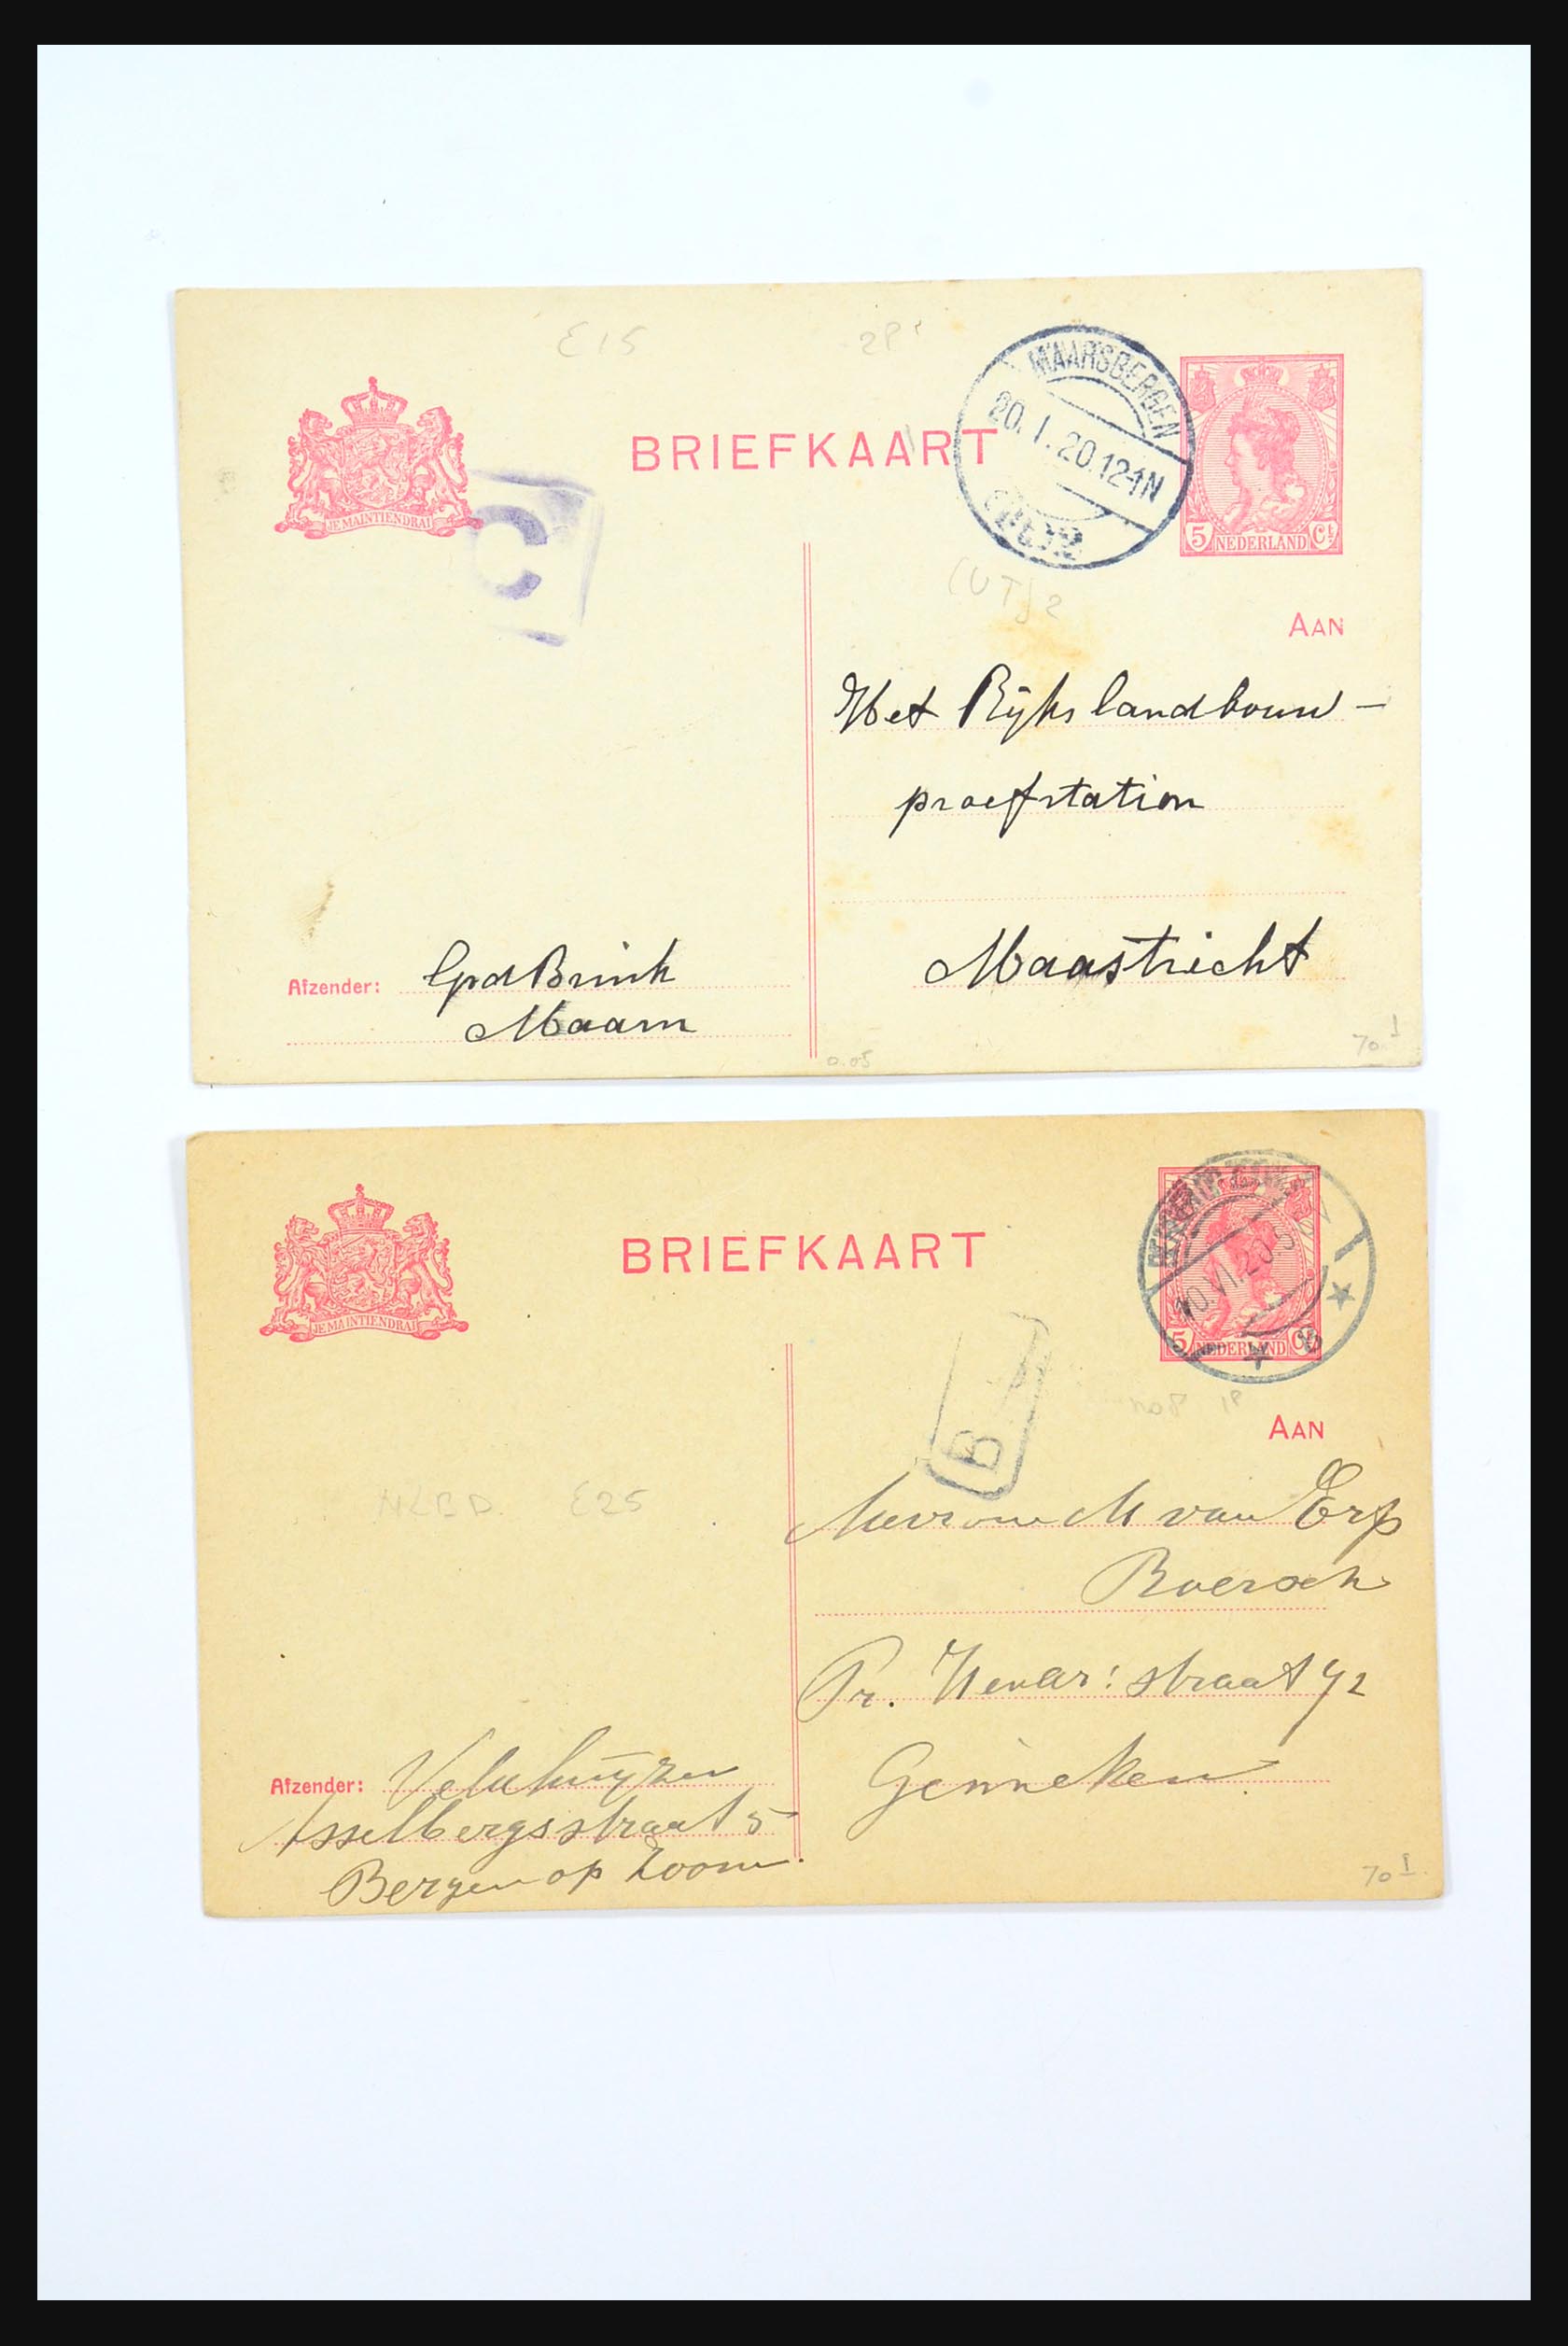 E15
BRIEFKAART
JE MAINTIENDRAI
C
MAARSBERGEN
20. 1. 20. 12-1N
5 NEDERLAND Ct
(UT) 2
AAN
Het Rijkslandbouw-
proefstation
Maastricht
Afzender: Gpd Brink
Maarn
0.05
70 I
BRIEFKAART
JE MAINTIENDRAI
10. VI. 20. 5
5 NEDERLAND
B
AAN
NLBD. E25
Mevrouw M van Erp
Pr. straat 42
Ginneken
Afzender: Veldhuyzen
Asselbergsstraat 5
Bergen op Zoom.
70 I